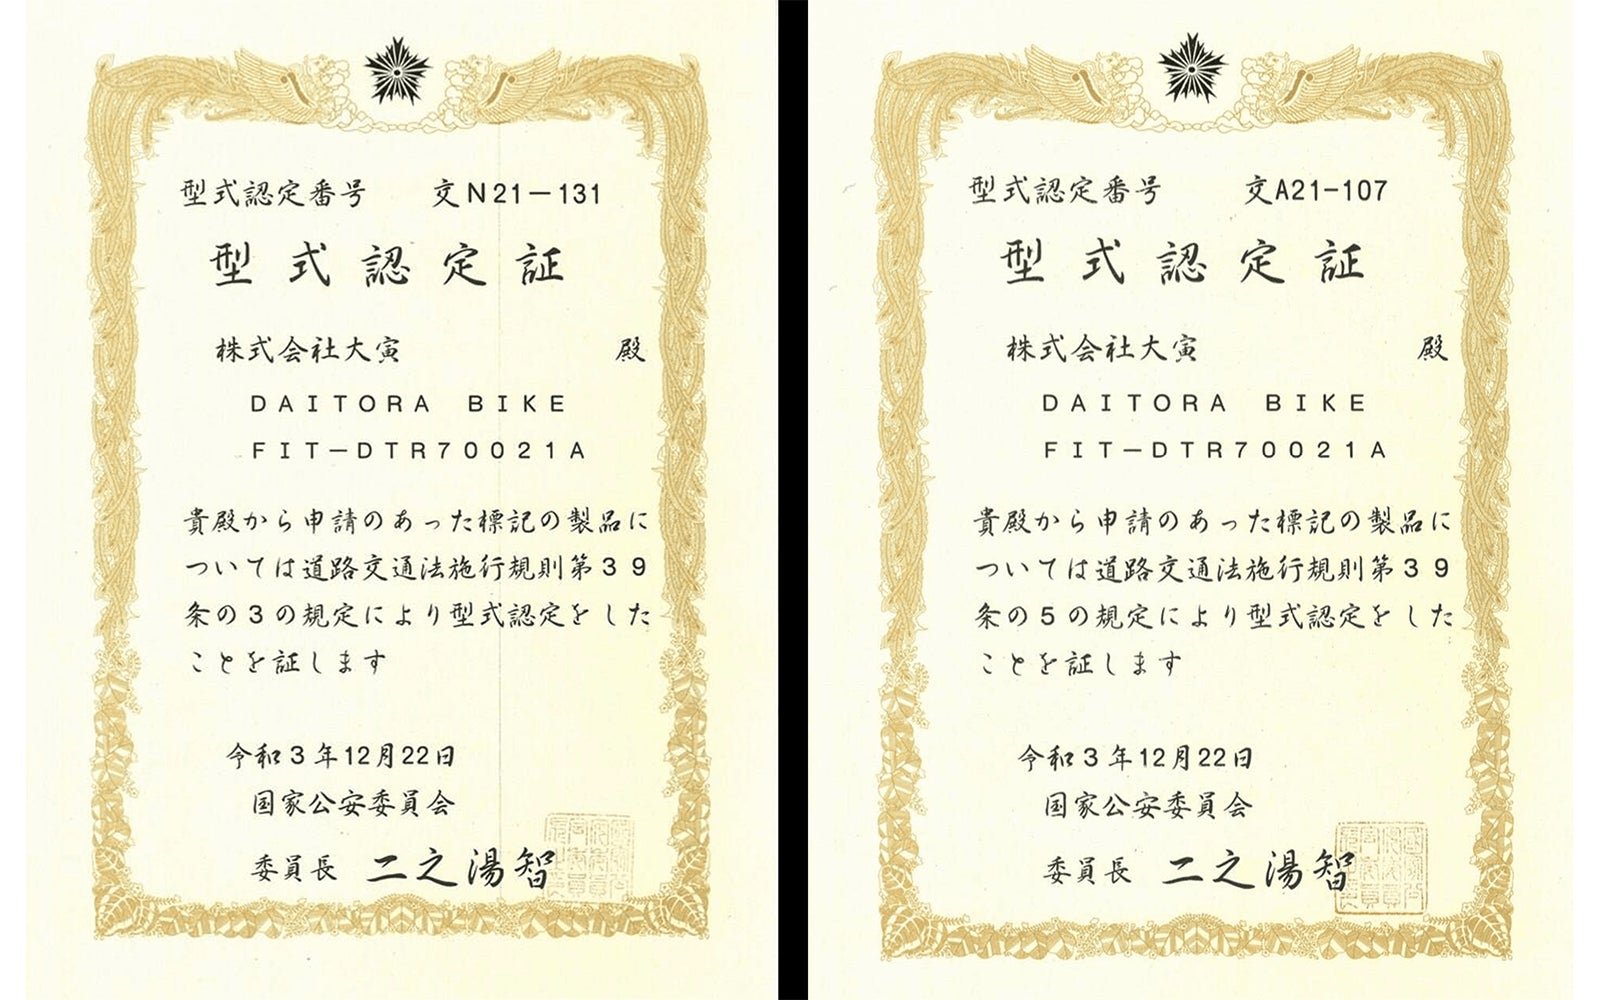 型式認定番号 交N21-131
型式認定証
株式会社大寅 殿
DAITORA BIKE
FIT-DTR70021A
貴殿から申請のあった標記の製品に
ついては道路交通法施行規則第39
条の3の規定により型式認定をした
ことを証します
令和3年12月22日
国家公安委員会
委員長 二之湯智
型式認定番号 交A21-107
型式認定証
株式会社大寅 殿
DAITORA BIKE
FIT-DTR70021A
貴殿から申請のあった標記の製品に
ついては道路交通法施行規則第39
条の5の規定により型式認定をした
ことを証します
令和3年12月22日
国家公安委員会
委員長 二之湯智